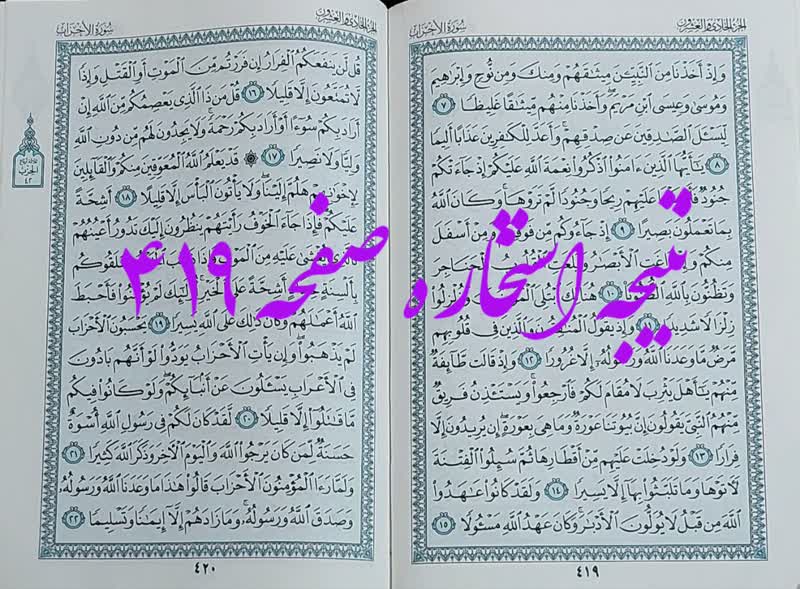 الجزء الحادي والعشرون سورة الأحزاب
وَإِذْ أَخَذْنَا مِنَ ٱلنَّبِيِّـۧنَ مِيثَٰقَهُمْ وَمِنكَ وَمِن نُّوحٍ وَإِبْرَٰهِيمَ
وَمُوسَىٰ وَعِيسَى ٱبْنِ مَرْيَمَ ۖ وَأَخَذْنَا مِنْهُم مِّيثَٰقًا غَلِيظًا ٧
لِّيَسْـَٔلَ ٱلصَّٰدِقِينَ عَن صِدْقِهِمْ ۚ وَأَعَدَّ لِلْكَٰفِرِينَ عَذَابًا أَلِيمًا
٨ يَٰٓأَيُّهَا ٱلَّذِينَ ءَامَنُوا۟ ٱذْكُرُوا۟ نِعْمَةَ ٱللَّهِ عَلَيْكُمْ إِذْ جَآءَتْكُمْ
جُنُودٌ عَلَيْهِمْ رِيحًا وَجُنُودًا لَّمْ تَرَوْهَا ۚ وَكَانَ ٱللَّهُ
بِمَا تَعْمَلُونَ بَصِيرًا ٩ إِذْ جَآءُوكُم مِّن فَوْقِكُمْ وَمِنْ أَسْفَلَ
مِنكُمْ ٱلْأَبْصَٰرُ ٱلْحَنَاجِرَ
وَتَظُنُّونَ بِٱللَّهِ ٱلظُّنُونَا۠ ١٠ هُنَالِكَ ٱبْتُلِىَ وَزُلْزِلُوا۟
زِلْزَالًا شَدِيدًا ١١ وَإِذْ يَقُولُ ٱلْمُنَٰفِقُونَ وَٱلَّذِينَ فِى قُلُوبِهِم
مَّرَضٌ مَّا وَعَدَنَا ٱللَّهُ وَرَسُولُهُۥٓ إِلَّا غُرُورًا ١٢ وَإِذْ قَالَت طَّآئِفَةٌ
مِّنْهُمْ يَٰٓأَهْلَ يَثْرِبَ لَا مُقَامَ لَكُمْ فَٱرْجِعُوا۟ ۚ وَيَسْتَـْٔذِنُ فَرِيقٌ
مِّنْهُمُ ٱلنَّبِىَّ يَقُولُونَ إِنَّ بُيُوتَنَا عَوْرَةٌ وَمَا هِىَ بِعَوْرَةٍ ۖ إِن يُرِيدُونَ إِلَّا
فِرَارًا ١٣ وَلَوْ دُخِلَتْ عَلَيْهِم مِّنْ أَقْطَارِهَا ثُمَّ سُئِلُوا۟ ٱلْفِتْنَةَ
لَـَٔاتَوْهَا وَمَا تَلَبَّثُوا۟ بِهَآ إِلَّا يَسِيرًا ١٤ وَلَقَدْ كَانُوا۟ عَٰهَدُوا۟
ٱللَّهَ مِن قَبْلُ لَا يُوَلُّونَ ٱلْأَدْبَٰرَ ۚ وَكَانَ عَهْدُ ٱللَّهِ مَسْـُٔولًا ١٥
٤١٩
نتیجه استخاره صفحه ۴۱۹
الجزء الحادي والعشرون سورة الأحزاب
قُل لَّن يَنفَعَكُمُ ٱلْفِرَارُ إِن فَرَرْتُم مِّنَ ٱلْمَوْتِ أَوِ ٱلْقَتْلِ وَإِذًا
لَّا تُمَتَّعُونَ إِلَّا قَلِيلًا ١٦ قُلْ مَن ذَا ٱلَّذِى يَعْصِمُكُم مِّنَ ٱللَّهِ إِنْ
أَرَادَ بِكُمْ سُوٓءًا أَوْ أَرَادَ بِكُمْ رَحْمَةً ۚ وَلَا يَجِدُونَ لَهُم مِّن دُونِ ٱللَّهِ
وَلِيًّا وَلَا نَصِيرًا ١٧ ۞ قَدْ يَعْلَمُ ٱللَّهُ ٱلْمُعَوِّقِينَ مِنكُمْ وَٱلْقَآئِلِينَ
لِإِخْوَٰنِهِمْ هَلُمَّ إِلَيْنَا ۖ وَلَا يَأْتُونَ ٱلْبَأْسَ إِلَّا قَلِيلًا ١٨ أَشِحَّةً
عَلَيْكُمْ ۖ فَإِذَا جَآءَ ٱلْخَوْفُ رَأَيْتَهُمْ يَنظُرُونَ إِلَيْكَ تَدُورُ أَعْيُنُهُمْ
كَٱلَّذِى يُغْشَىٰ عَلَيْهِ مِنَ ٱلْمَوْتِ ۖ فَإِذَا ذَهَبَ سَلَقُوكُم
بِأَلْسِنَةٍ أَشِحَّةً عَلَى ٱلْخَيْرِ ۚ أُو۟لَٰٓئِكَ لَمْ يُؤْمِنُوا۟ فَأَحْبَطَ
ٱللَّهُ أَعْمَٰلَهُمْ ۚ وَكَانَ ذَٰلِكَ عَلَى ٱللَّهِ يَسِيرًا ١٩ يَحْسَبُونَ ٱلْأَحْزَابَ
لَمْ يَذْهَبُوا۟ ۖ وَإِن يَأْتِ ٱلْأَحْزَابُ يَوَدُّوا۟ لَوْ أَنَّهُم بَادُونَ
فِى ٱلْأَعْرَابِ يَسْـَٔلُونَ عَنْ أَنۢبَآئِكُمْ ۖ وَلَوْ كَانُوا۟ فِيكُم
مَّا قَٰتَلُوٓا۟ إِلَّا قَلِيلًا ٢٠ لَّقَدْ كَانَ لَكُمْ فِى رَسُولِ ٱللَّهِ أُسْوَةٌ
حَسَنَةٌ لِّمَن كَانَ يَرْجُوا۟ ٱللَّهَ وَٱلْيَوْمَ ٱلْـَٔاخِرَ وَذَكَرَ ٱللَّهَ كَثِيرًا ٢١
وَلَمَّا رَءَا ٱلْمُؤْمِنُونَ ٱلْأَحْزَابَ قَالُوا۟ هَٰذَا مَا وَعَدَنَا ٱللَّهُ وَرَسُولُهُۥ
وَصَدَقَ ٱللَّهُ وَرَسُولُهُۥ ۚ وَمَا زَادَهُمْ إِلَّآ إِيمَٰنًا وَتَسْلِيمًا ٢٢
٤٢٠